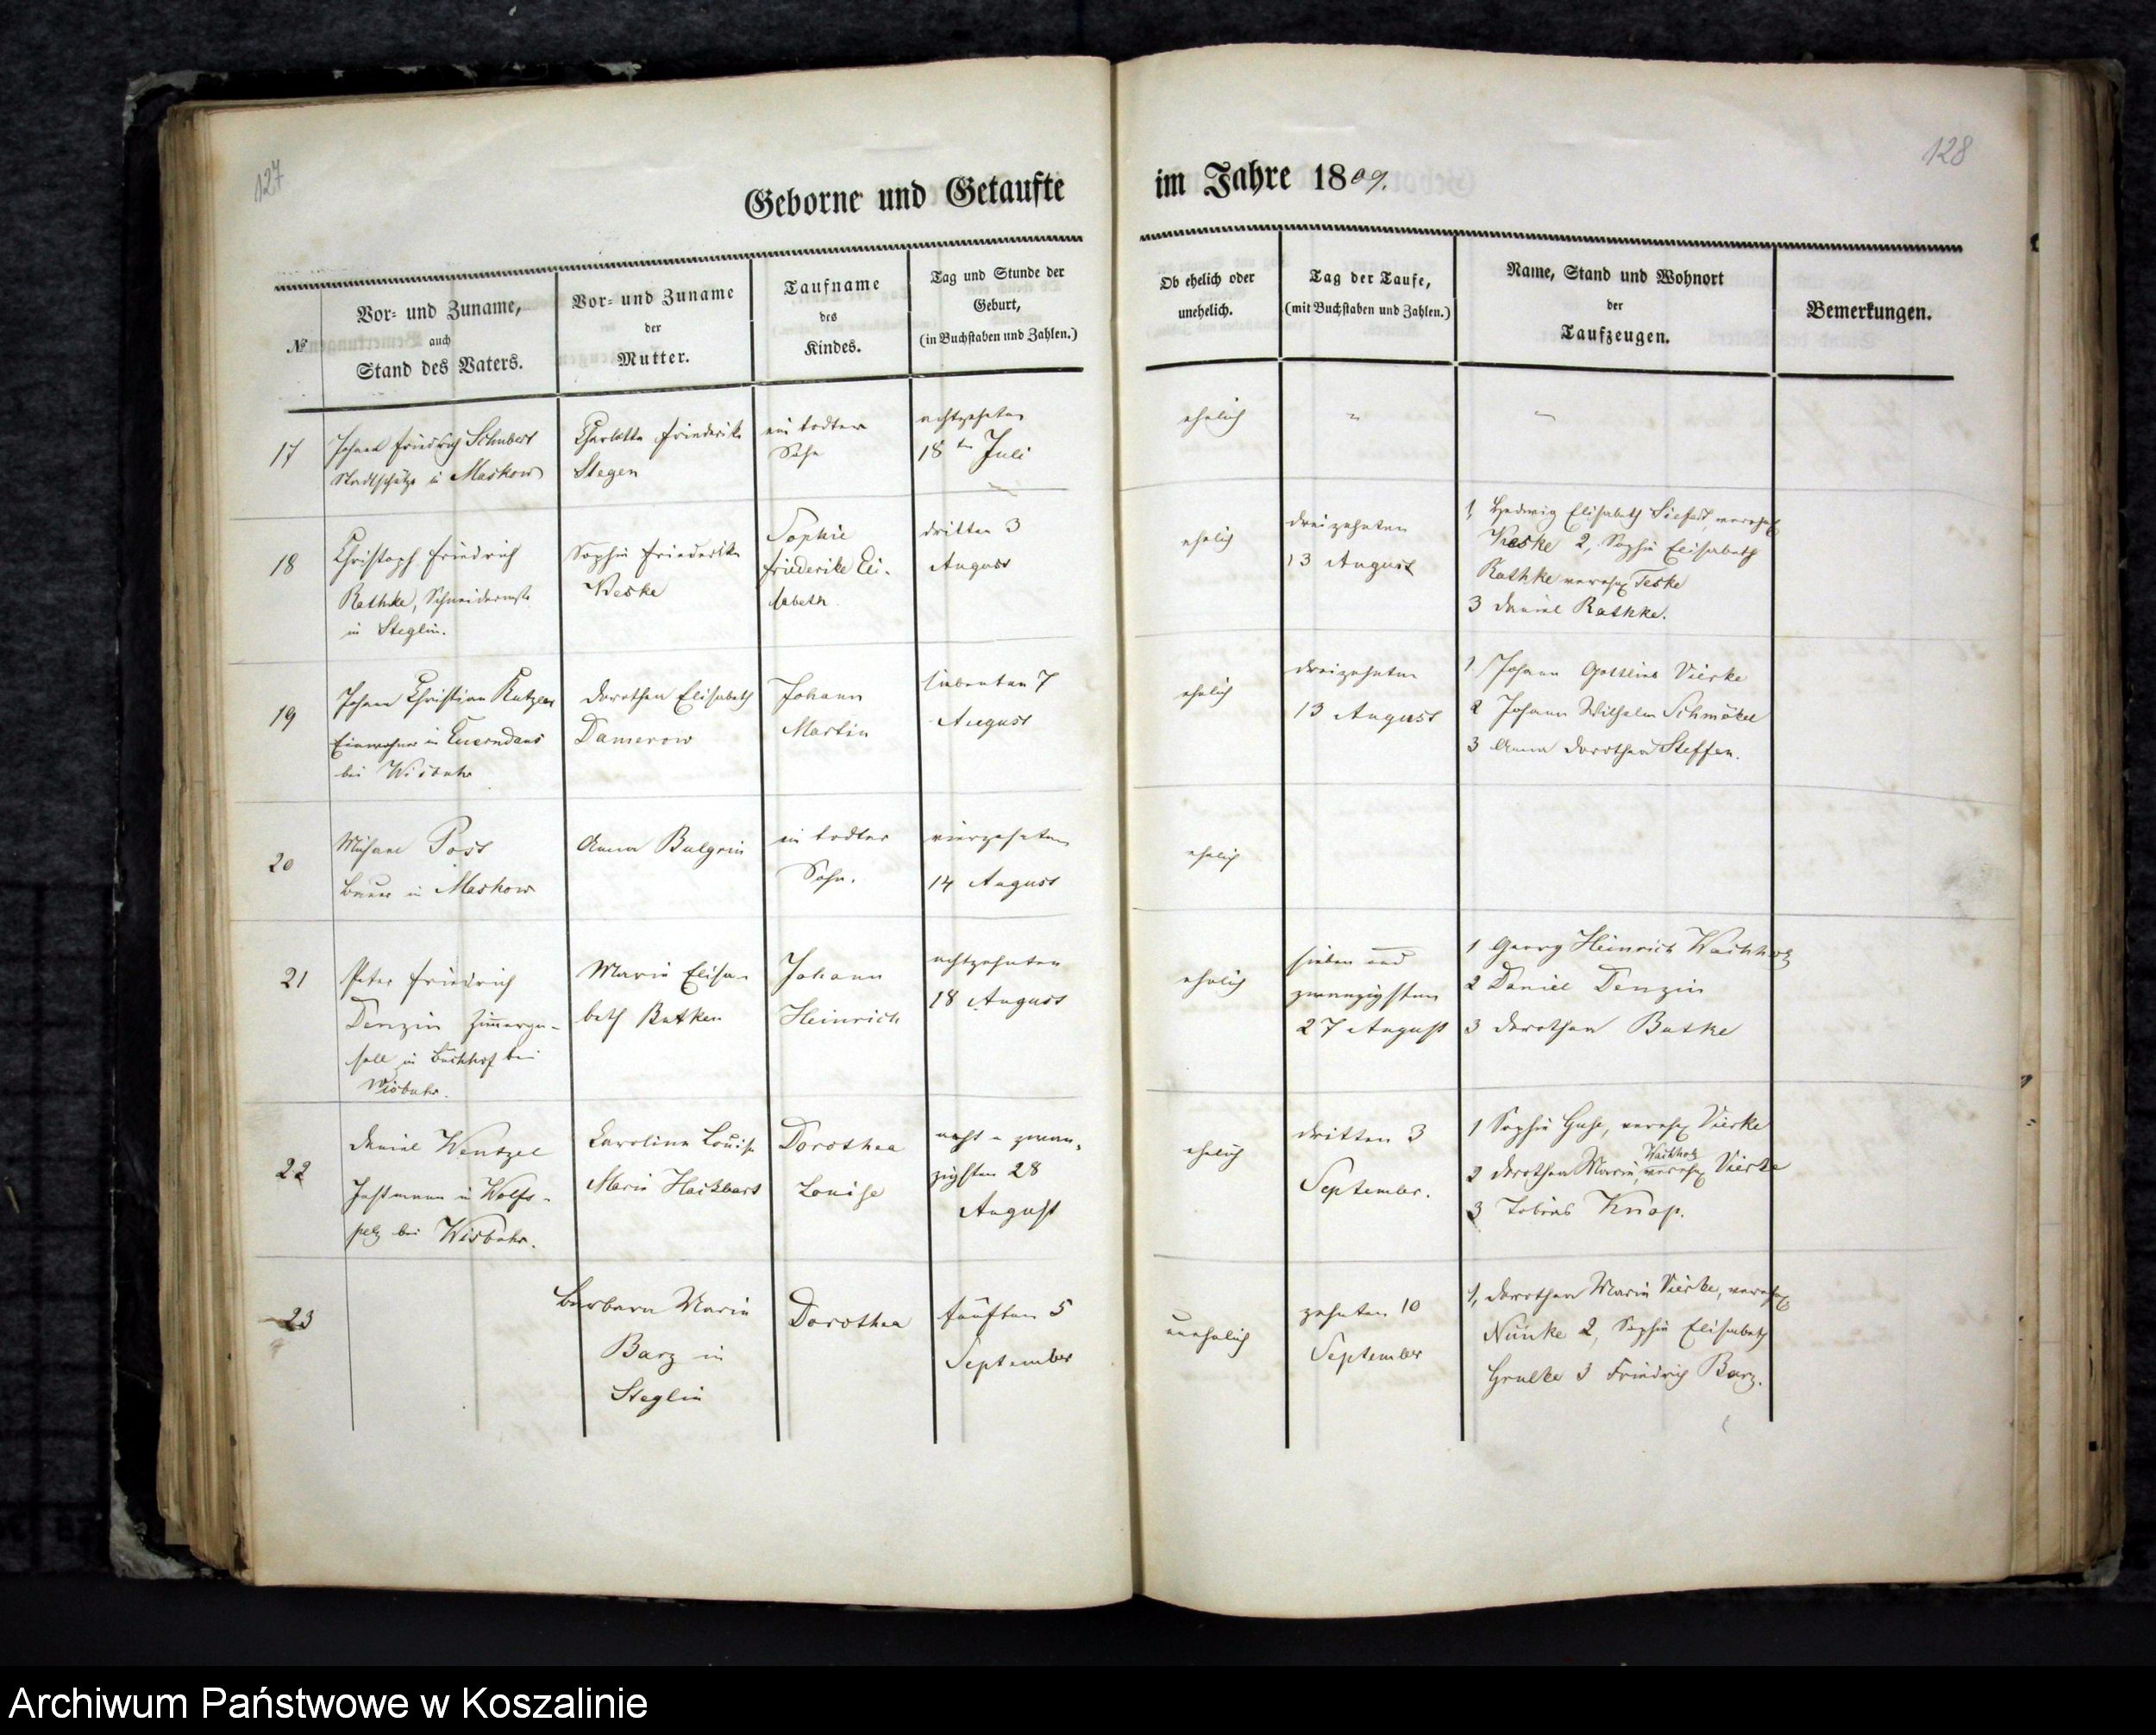 127
128
Geborne und Getaufte im Jahre 1809.
№
Vor- und Zuname,
auch
Stand des Vaters.
Vor- und Zuname
der
Mutter.
Taufname
des
Kindes.
Tag und Stunde der
Geburt,
(in Buchstaben und Zahlen.)
Ob ehelich oder
unehelich.
Tag der Taufe,
(mit Buchstaben und Zahlen.)
Name, Stand und Wohnort
der
Taufzeugen.
Bemerkungen.
17
Johann Friedrich Schubert
in Maskow
Charlotte Friederike
Stegen
ein todter
Sohn
achtzehnten
18ten Juli
ehelich
18
Christoph Friedrich
Rathke, Schneidermstr
in Steglin.
Sophie Friederike
Weske
Sophie
Friederike Eli-
sabeth
dritten 3
August
ehelich
dreizehnten
13 August
1, Hedwig Elisabeth
2, Sophie Elisabeth
Rathke verehl Teske
3 Daniel Rathke.
19
Johann Christian
Einwohner in
bei Wisbuhr
Dorothea Elisabeth
Damerow
Johann
Martin
siebenten 7
August
ehelich
dreizehnten
13 August
1 Johann Gottlieb Vierke
2 Johann Wilhelm Schmökel
3 Anna Dorothea Steffen.
20
Michael Post
Bauer in Maskow
Anna Bulgrin
ein todter
Sohn.
vierzehnten
14 August
ehelich
21
Peter Friedrich
Denzin Zimmerge-
sell in Buchhof bei
Wisbuhr.
Marie Elisa-
beth Batken
Johann
Heinrich
achtzehnten
18 August
ehelich
sieben und
zwanzigsten
27 August
1 Georg Heinrich Wachholz
2 Daniel Denzin
3 Dorothea Batke
22
Daniel Wentzel
in Wolfs-
bei Wisbuhr.
Karoline Louise
Marie Hackbart
Dorothea
Louise
acht u zwan-
zigsten 28
August
ehelich
dritten 3
September.
1 Sophie Guse, verehl Vierke
Wachholz
2 Dorothea Marie, verehl Vierke
3 Tobias Knop.
23
Barbara Marie
Barz in
Steglin
Dorothea
fünften 5
September
unehelich
zehnten 10
September
1, Dorothea Marie Vierke, verehl
Nünke 2, Sophie Elisabeth
Grulke 3 Friedrich Barz.
Archiwum Państwowe w Koszalinie